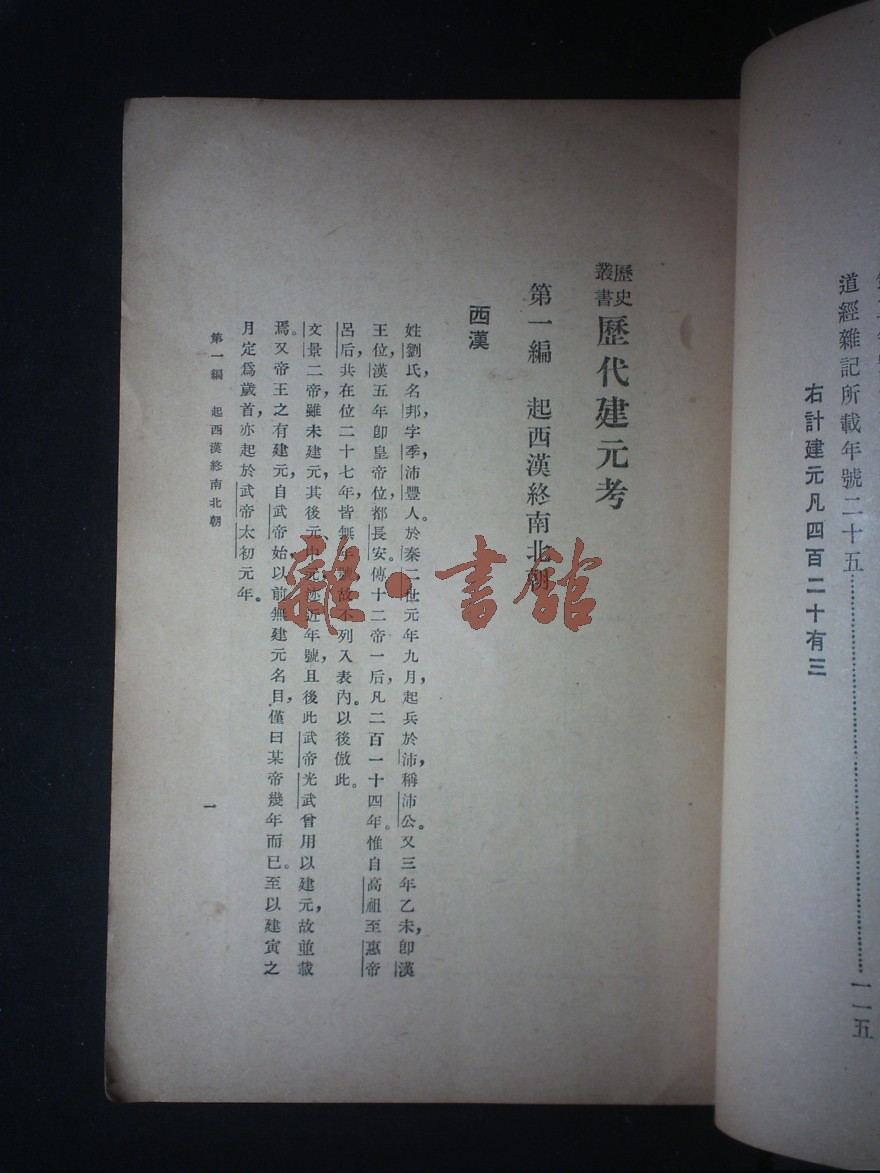 道經雜記所載年號二十五⋯⋯⋯⋯⋯⋯⋯⋯一一五
右計建元凡四百二十有三
歷史叢書 歷代建元考
第一編 起西漢終南北朝
西漢
姓劉氏，名邦，字季，沛豐人。於秦二世元年九月，起兵於沛，稱沛公。又三年乙未，卽漢
王位，漢五年卽皇帝位，都長安。傳十二帝一后，凡二百一十四年。惟自高祖至惠帝
呂后，共在位二十七年，皆無年號，故不列入表內。以後倣此。
文景二帝，雖未建元，其後元、中元，迹近年號，且後此武帝光武曾用以建元，故並載
焉。又帝王之有建元，自武帝始，以前無建元名目，僅曰某帝幾年而已。至以建寅之
月定爲歲首，亦起於武帝太初元年。
第一編 起西漢終南北朝
一
雜·書館